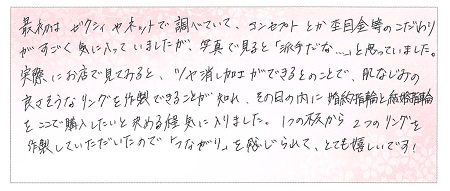 最初は ゼクシィやネットで調べていて、コンセプトとか杢目金等のこだわり
がすごく気に入っていましたが、写真で見ると「派手だな…」と思っていました。
実際にお店で見てみると、ツヤ消し加工ができるとのことで、肌なじみの
良さそうなリングを作製できることが知れ、その日の内に婚約指輪と結婚指輪
をここで購入したいと決める程気に入りました。1つの板から2つのリングを
作製していただいたので「つながり」を感じられて、とても嬉しいです!